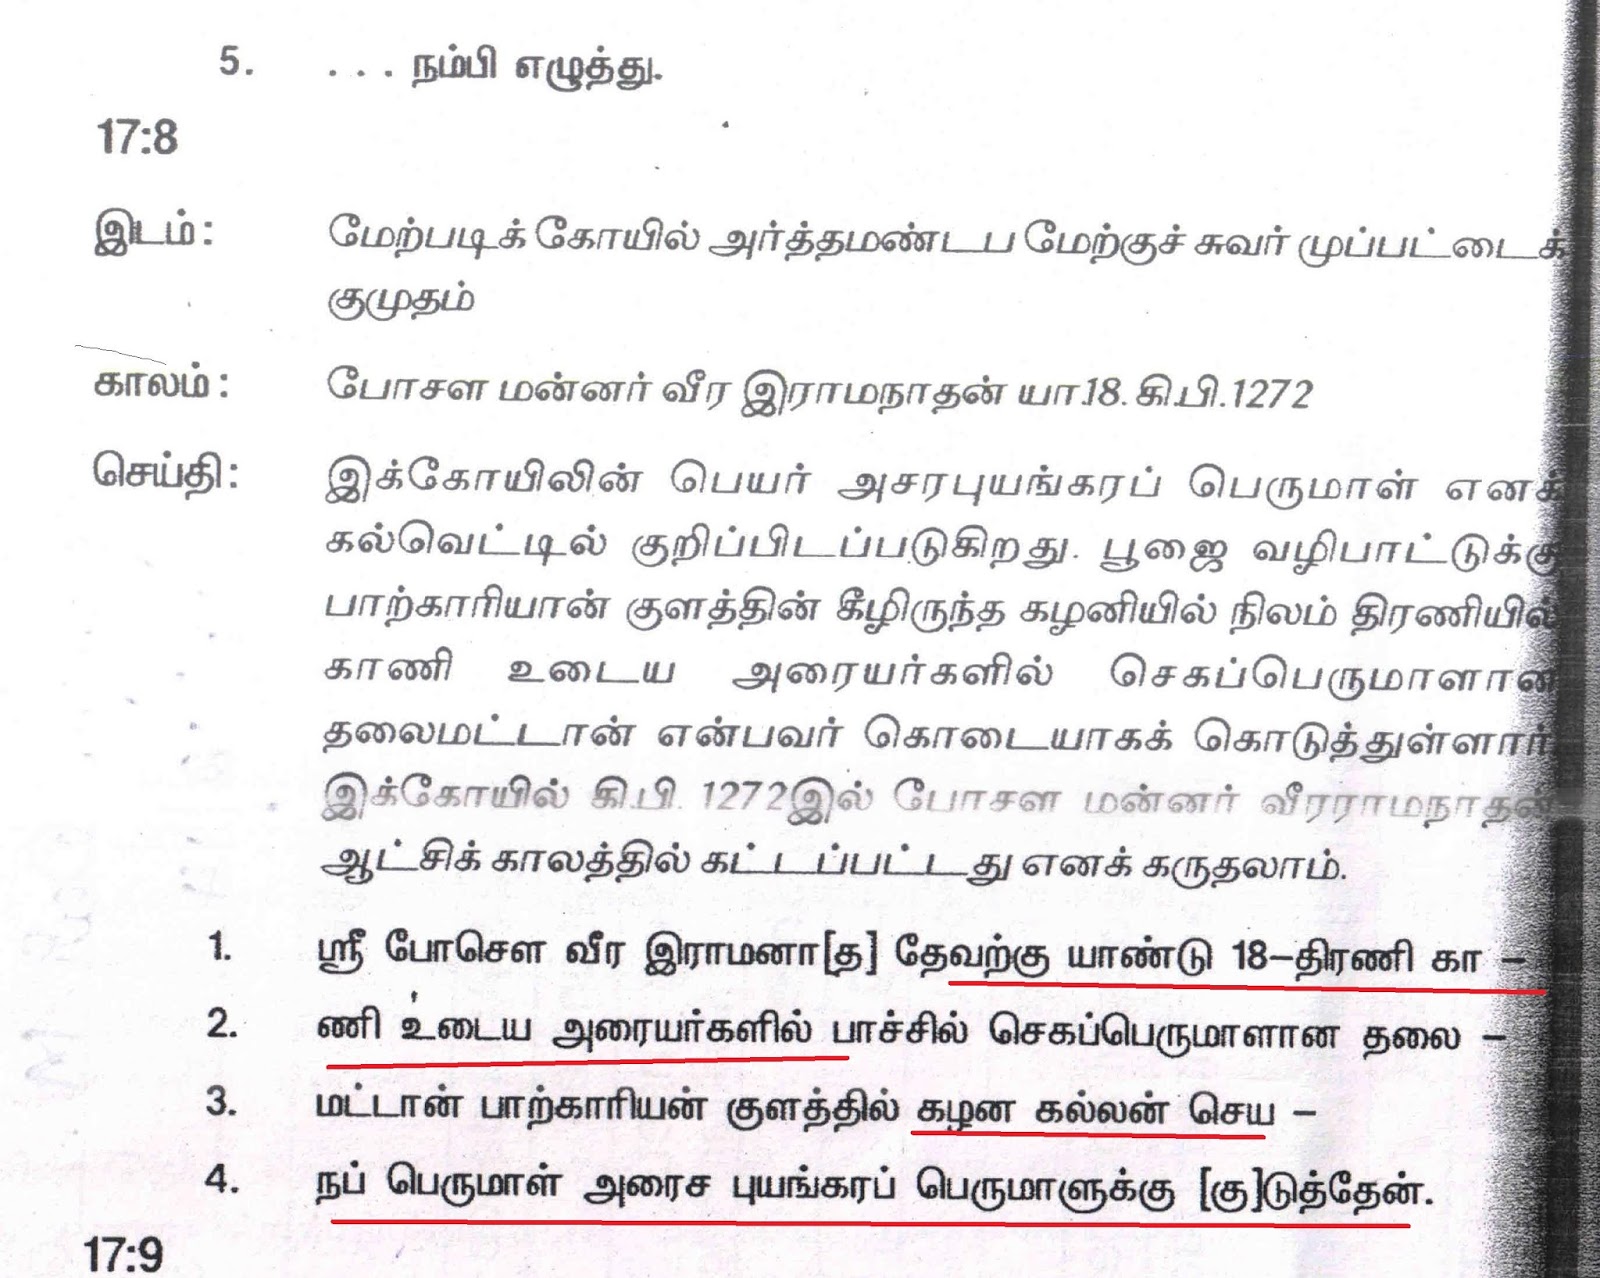 5. . . . நம்பி எழுத்து.
17:8
இடம் : மேற்படிக் கோயில் அர்த்தமண்டப மேற்குச் சுவர் முப்பட்டைக்
குமுதம்
காலம் : போசள மன்னர் வீர இராமநாதன் யா.18. கி.பி.1272
செய்தி : இக்கோயிலின் பெயர் அசரபுயங்கரப் பெருமாள் எனக்
கல்வெட்டில் குறிப்பிடப்படுகிறது. பூஜை வழிபாட்டுக்கு
பாற்காரியான் குளத்தின் கீழிருந்த கழனியில் நிலம் திரணியில்
காணி உடைய அரையர்களில் செகப்பெருமாளான
தலைமட்டான் என்பவர் கொடையாகக் கொடுத்துள்ளார்.
இக்கோயில் கி.பி. 1272இல் போசள மன்னர் வீரராமநாதன்
ஆட்சிக் காலத்தில் கட்டப்பட்டது எனக் கருதலாம்.
1. ஸ்ரீ போசௌ வீர இராமனா[த] தேவற்கு யாண்டு 18–திரணி கா –
2. ணி உடைய அரையர்களில் பாச்சில் செகப்பெருமாளான தலை –
3. மட்டான் பாற்காரியன் குளத்தில் கழன கல்லன் செய –
4. நப் பெருமாள் அரைச புயங்கரப் பெருமாளுக்கு [கு]டுத்தேன்.
17:9